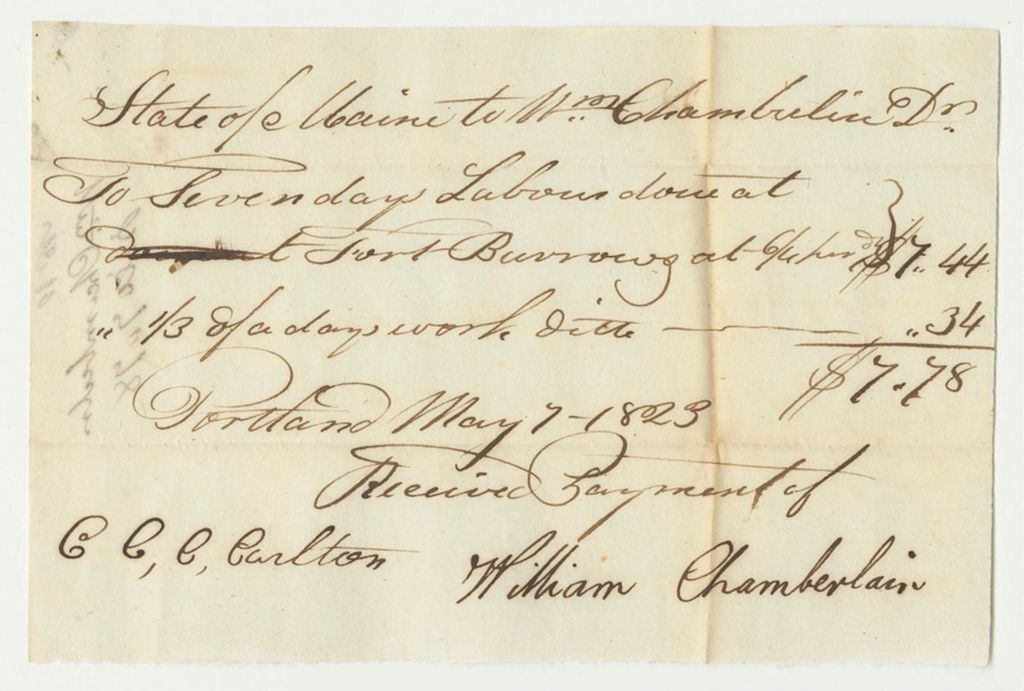 State of Maine to Wm Chamberlin Dr.
To Seven days Labour done at
Fort Burrows at 6/4 per day $7.44
" 1/3 of a days work ditto — ".34
$7.78
Portland May 7-1823
Received Payment of
C, C, C, Carlton William Chamberlain